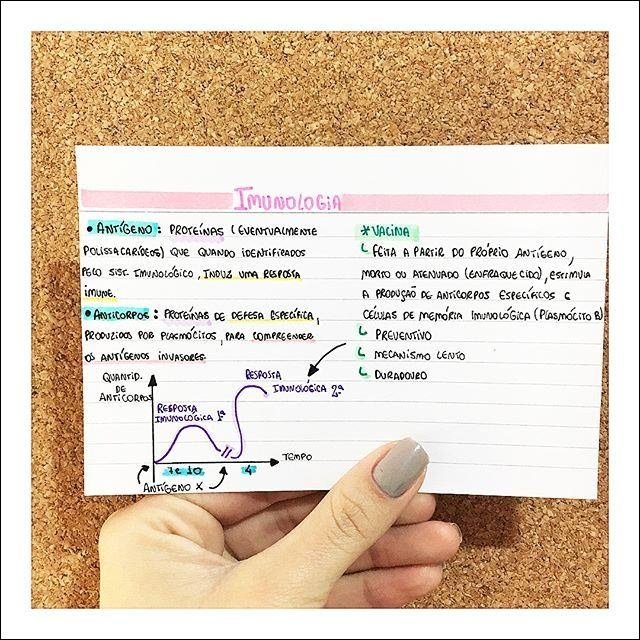 IMUNOLOGIA
• ANTÍGENO: PROTEÍNAS (EVENTUALMENTE
POLISSACARÍDEOS) QUE QUANDO IDENTIFICADOS
PELO SIST. IMUNOLÓGICO, INDUZ UMA RESPOSTA
IMUNE.
• ANTICORPOS: PROTEÍNAS DE DEFESA ESPECÍFICA,
PRODUZIDOS POR PLASMÓCITOS, PARA COMPREENDER
OS ANTÍGENOS INVASORES.
QUANTID.
DE
ANTICORPOS
RESPOSTA
IMUNOLÓGICA 1ª
RESPOSTA
IMUNOLÓGICA 2ª
TEMPO
7 e 10
4
ANTÍGENO X
* VACINA
FEITA A PARTIR DO PRÓPRIO ANTÍGENO,
MORTO OU ATENUADO (ENFRAQUECIDO), ESTIMULA
A PRODUÇÃO DE ANTICORPOS ESPECÍFICOS E
CÉLULAS DE MEMÓRIA IMUNOLÓGICA (PLASMÓCITO B)
PREVENTIVO
MECANISMO LENTO
DURADOURO